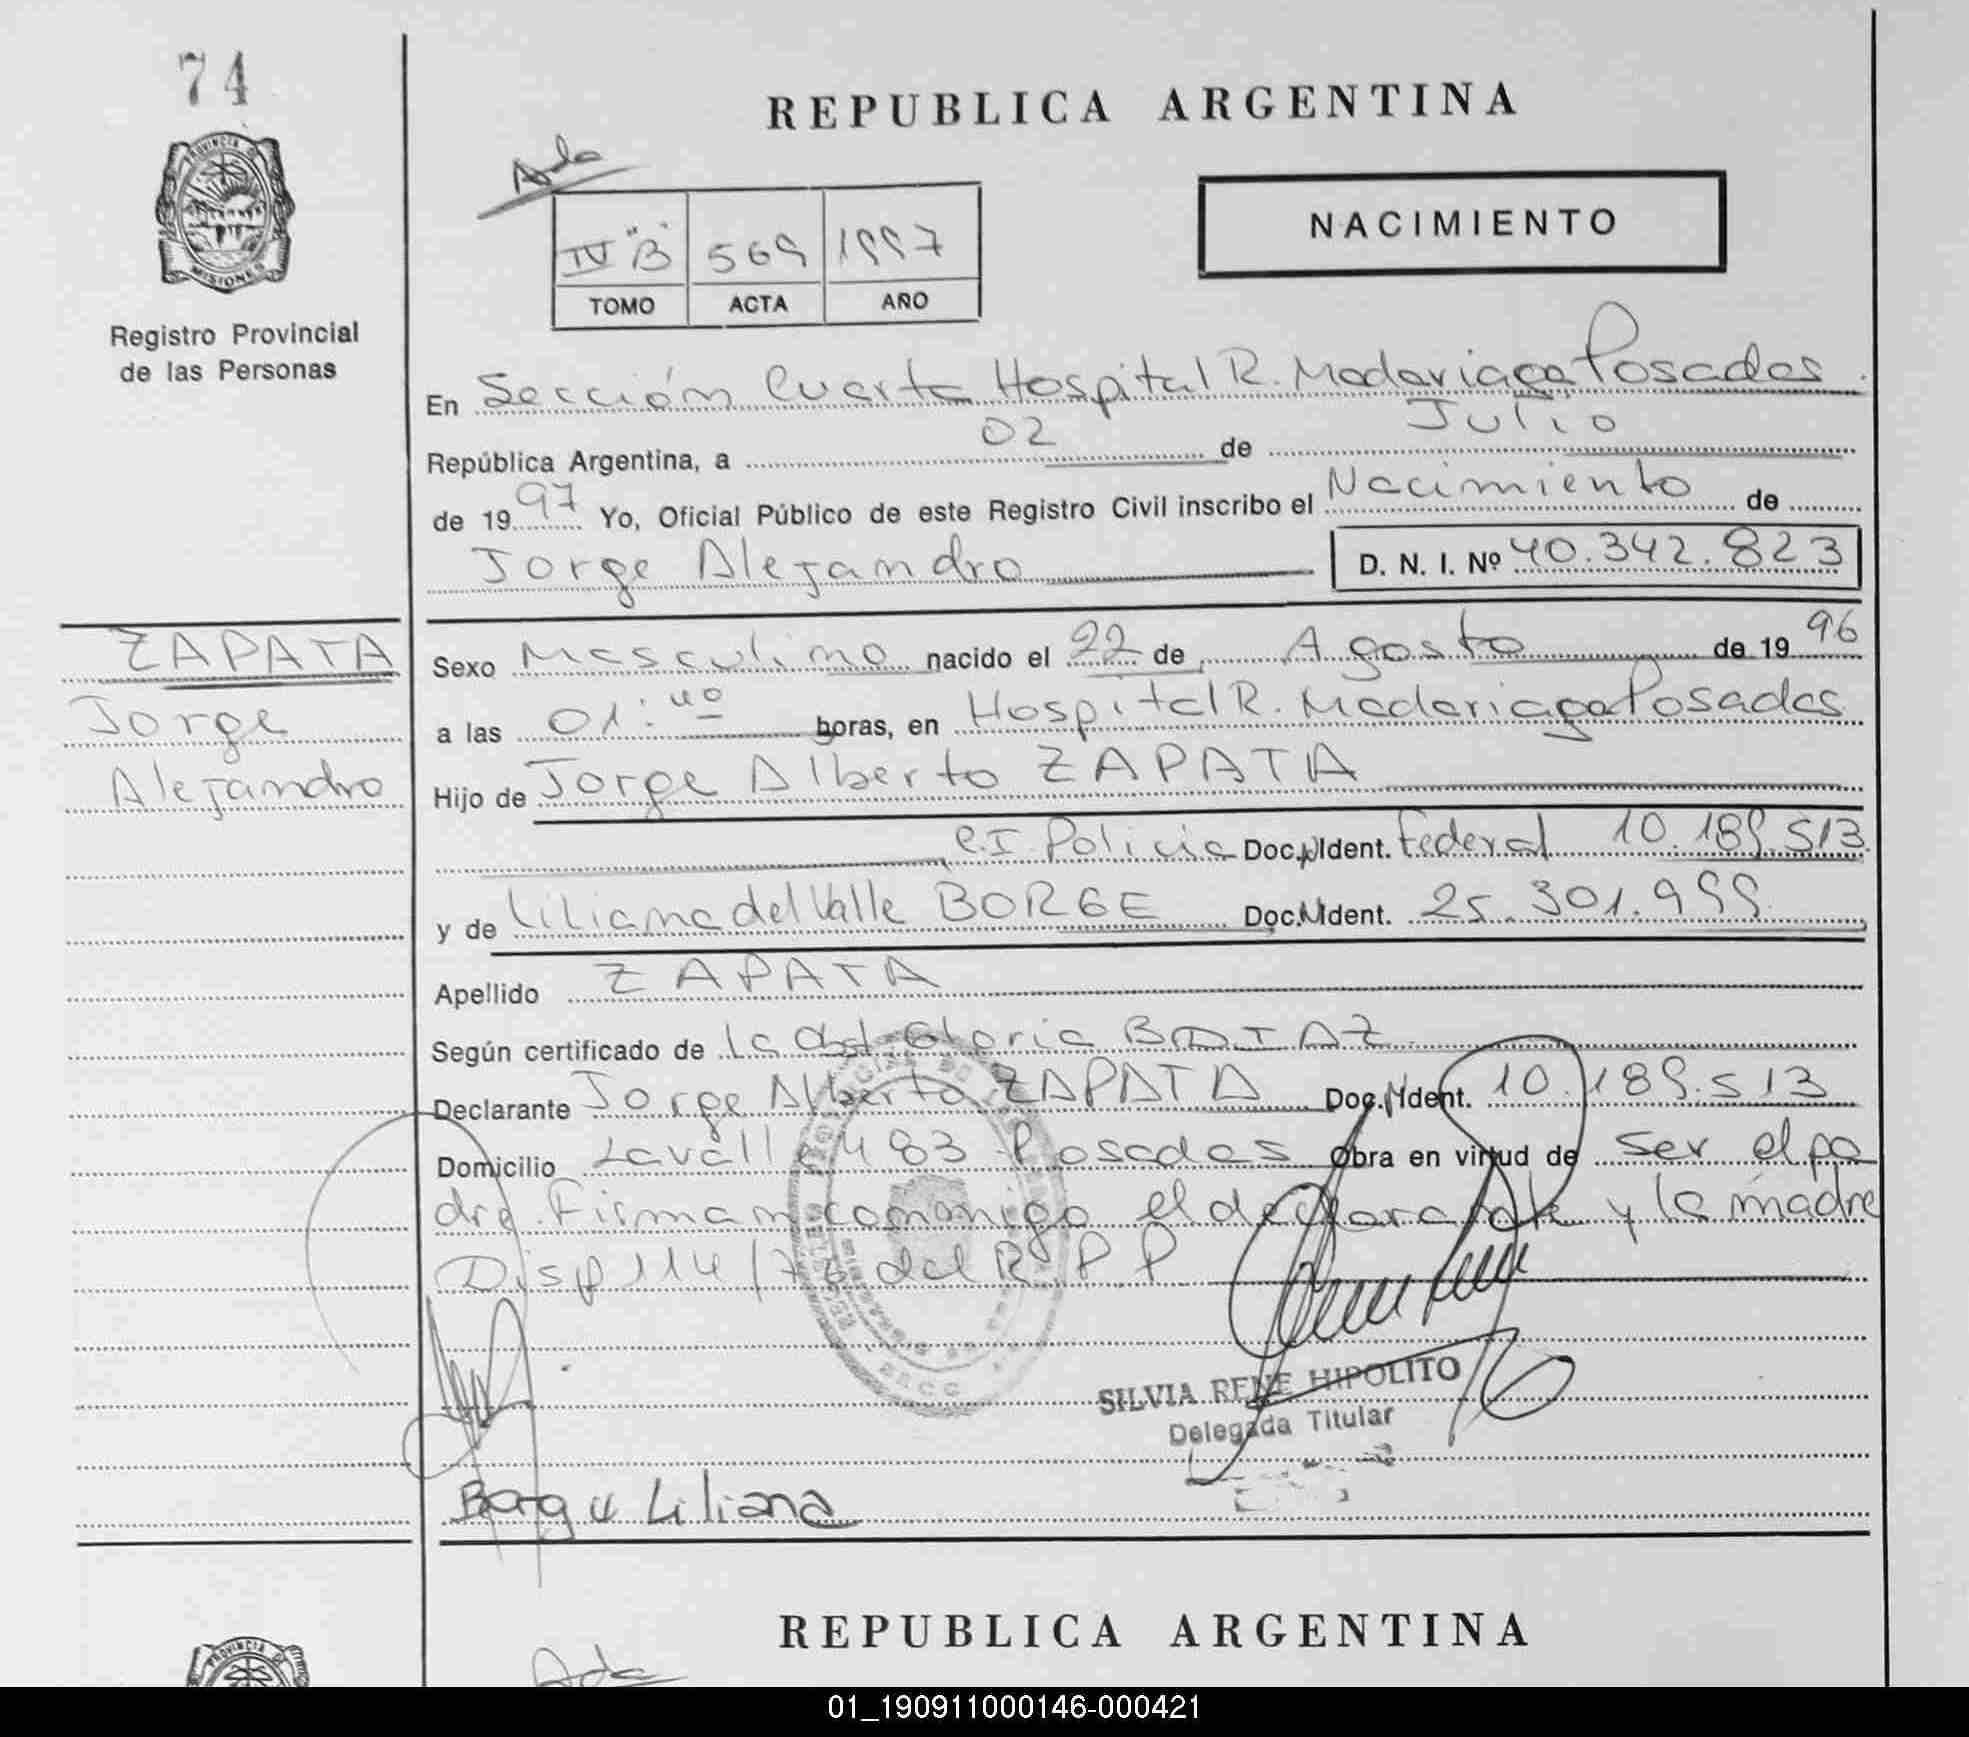 74
PROVINCIA DE
MISIONES
Registro Provincial
de las Personas
REPUBLICA ARGENTINA
Ada
IV "B" 569 1997
TOMO ACTA AÑO
NACIMIENTO
En Sección Cuarta Hospital R. Madariaga Posadas
República Argentina, a 02 de Julio
de 1997 Yo, Oficial Público de este Registro Civil inscribo el Nacimiento de
Jorge Alejandro D. N. I. Nº 40.342.823
ZAPATA
Jorge
Alejandro
Sexo Masculino nacido el 22 de Agosto de 1996
a las 01:40 horas, en Hospital R. Madariaga Posadas
Hijo de Jorge Alberto ZAPATA
C.I. Policia Doc. Ident. Federal 10.189.513
y de Liliana del Valle BORGE Doc. Ident. 25.301.999
Apellido ZAPATA
Según certificado de la Obst. Gloria
Declarante Jorge Alberto ZAPATA Doc. Ident. 10.189.513
Domicilio Lavalle 483 Posadas Obra en virtud de ser el pa
dre. Firman conmigo el declarante y la madre
Disp 114/ del R.P.P
SILVIA RENE HIPOLITO
Delegada Titular
Liliana
REPUBLICA ARGENTINA
PROVINCIA
Ada
01_190911000146-000421